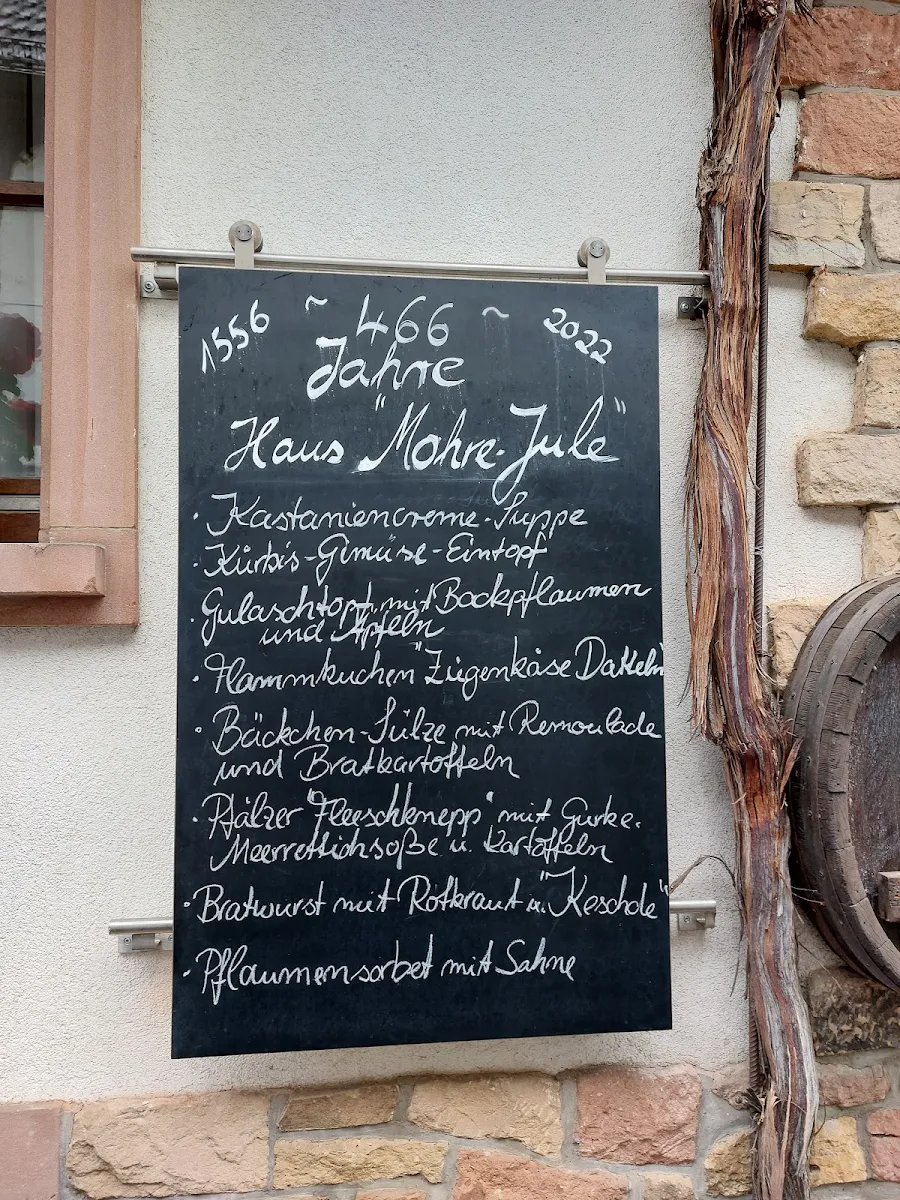 1556 ~ 466 ~ 2022
Jahre
Haus "Mohre-Jule"
· Kastaniencreme-Suppe
· Kürbis-Gemüse-Eintopf
· Gulaschtopf mit Backpflaumen
und Äpfeln
· Flammkuchen "Ziegenkäse Datteln
· Bäckchen-Sülze mit Remoulade
und Bratkartoffeln
· Pfälzer "Fleeschknepp" mit Gurke.
Meerrettichsoße u. Kartoffeln
· Bratwurst mit Rotkraut u. "Keschde"
· Pflaumensorbet mit Sahne